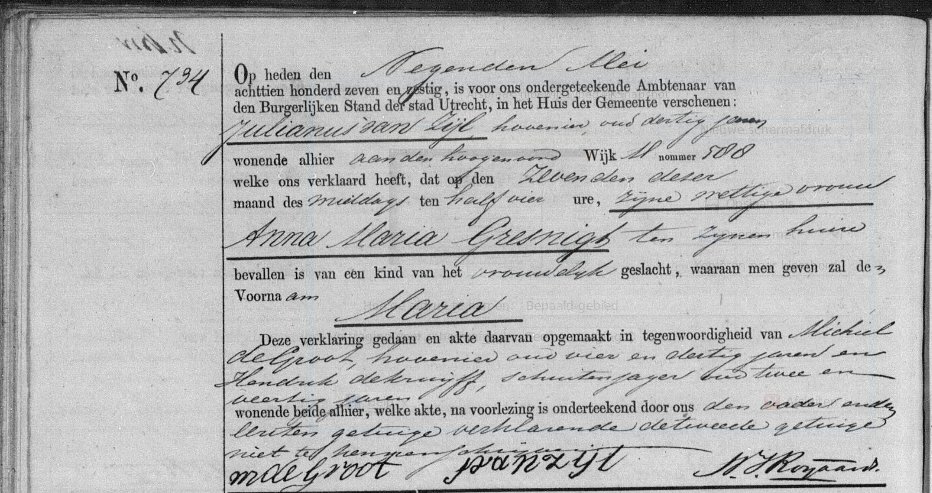 No. 734
Op heden den Negenden Mei
achttien honderd zeven en zestig, is voor ons ondergeteekende Ambtenaar van
den Burgerlijken Stand der stad Utrecht, in het Huis der Gemeente verschenen:
Julianus van Zijl, hovenier, oud dertig jaren
wonende alhier aan den hoogenoord Wijk M nommer 588
welke ons verklaard heeft, dat op den Zevenden deser
maand des middags ten half vier ure, zijne wettige vrouw
Anna Maria Gresnigt ten zijnen huize
bevallen is van een kind van het vrouwelijk geslacht, waaraan men geven zal de
Voornaam
Maria
Deze verklaring gedaan en akte daarvan opgemaakt in tegenwoordigheid van Michiel
de Groot, hovenier oud vier en dertig jaren en
Hendrik de Kruijff, schuitenjager oud twee en
veertig jaren
wonende beide alhier, welke akte, na voorlezing is onderteekend door ons den vader en den
eersten getuige verklarende de tweede getuige
niet te kennen
m de Groot J van Zijl Royaards